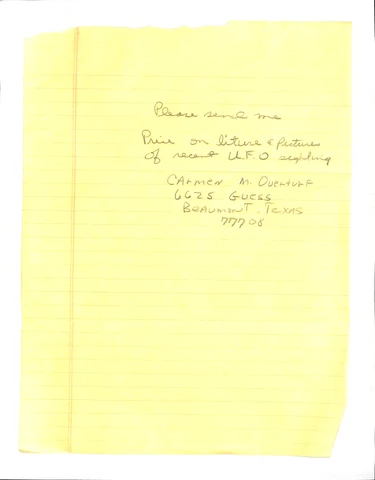 Please send me
Price on liture & Pictures
of recent U.F.O sighting
CARMEN M. OVERTURF
6625 GUESS
BEAUMONT, TEXAS
77708